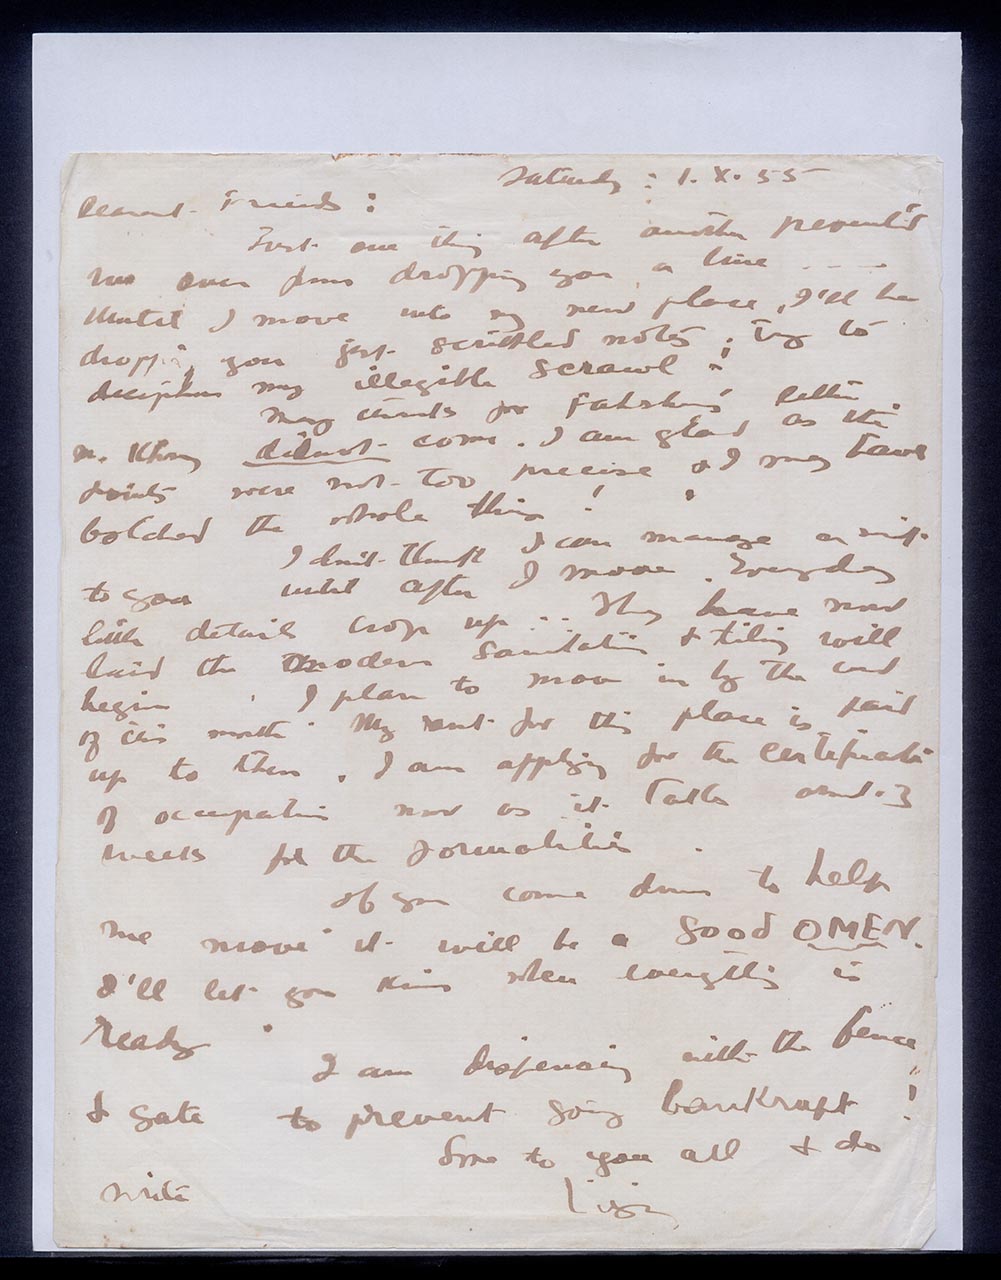 Saturday : 1. X. 55
Dearest Friends :
Just one thing after another prevented
me even from dropping you a line ....
Until I move into my new place, I'll be
dropp'g you just scribbled notes. Try to
decipher my illegible scrawl !
Many thanks for letter.
M. Khony did not come. I am glad as the
points were not too precise & I may have
botched the whole thing !
I don't think I can manage a visit
to you until after I move. Everyday
little details crop up ... They have now
laid the modern sanitation & tiling will
begin. I plan to move in by the end
of this month. My rent for this place is paid
up to then. I am applying for the certificate
of occupation now as it takes about 3
weeks for the formalities.
If you come down to help
me move it will be a good OMEN.
I'll let you know when everything is
ready.
I am dispensing with the fence
& gate to prevent going bankrupt !
Love to you all & do
write